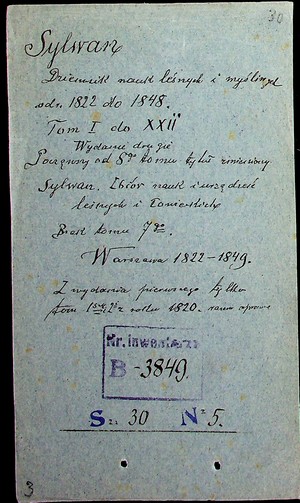 30
Sylwan
Dziennik nauk leśnych i myśliwych
od r. 1822 do 1848.
Tom I do XXII
Wydanie drugie
Począwszy od 8go tomu tytuł zmieniony
Sylwan. Zbiór nauk i urządzeń
leśnych i łowieckich
Brak tomu 7go.
Warszawa 1822-1849.
Z wydania pierwszego tylko
tom z roku 1820.
Nr. inwentarza
B -3849.
Sz. 30 No 5.
3